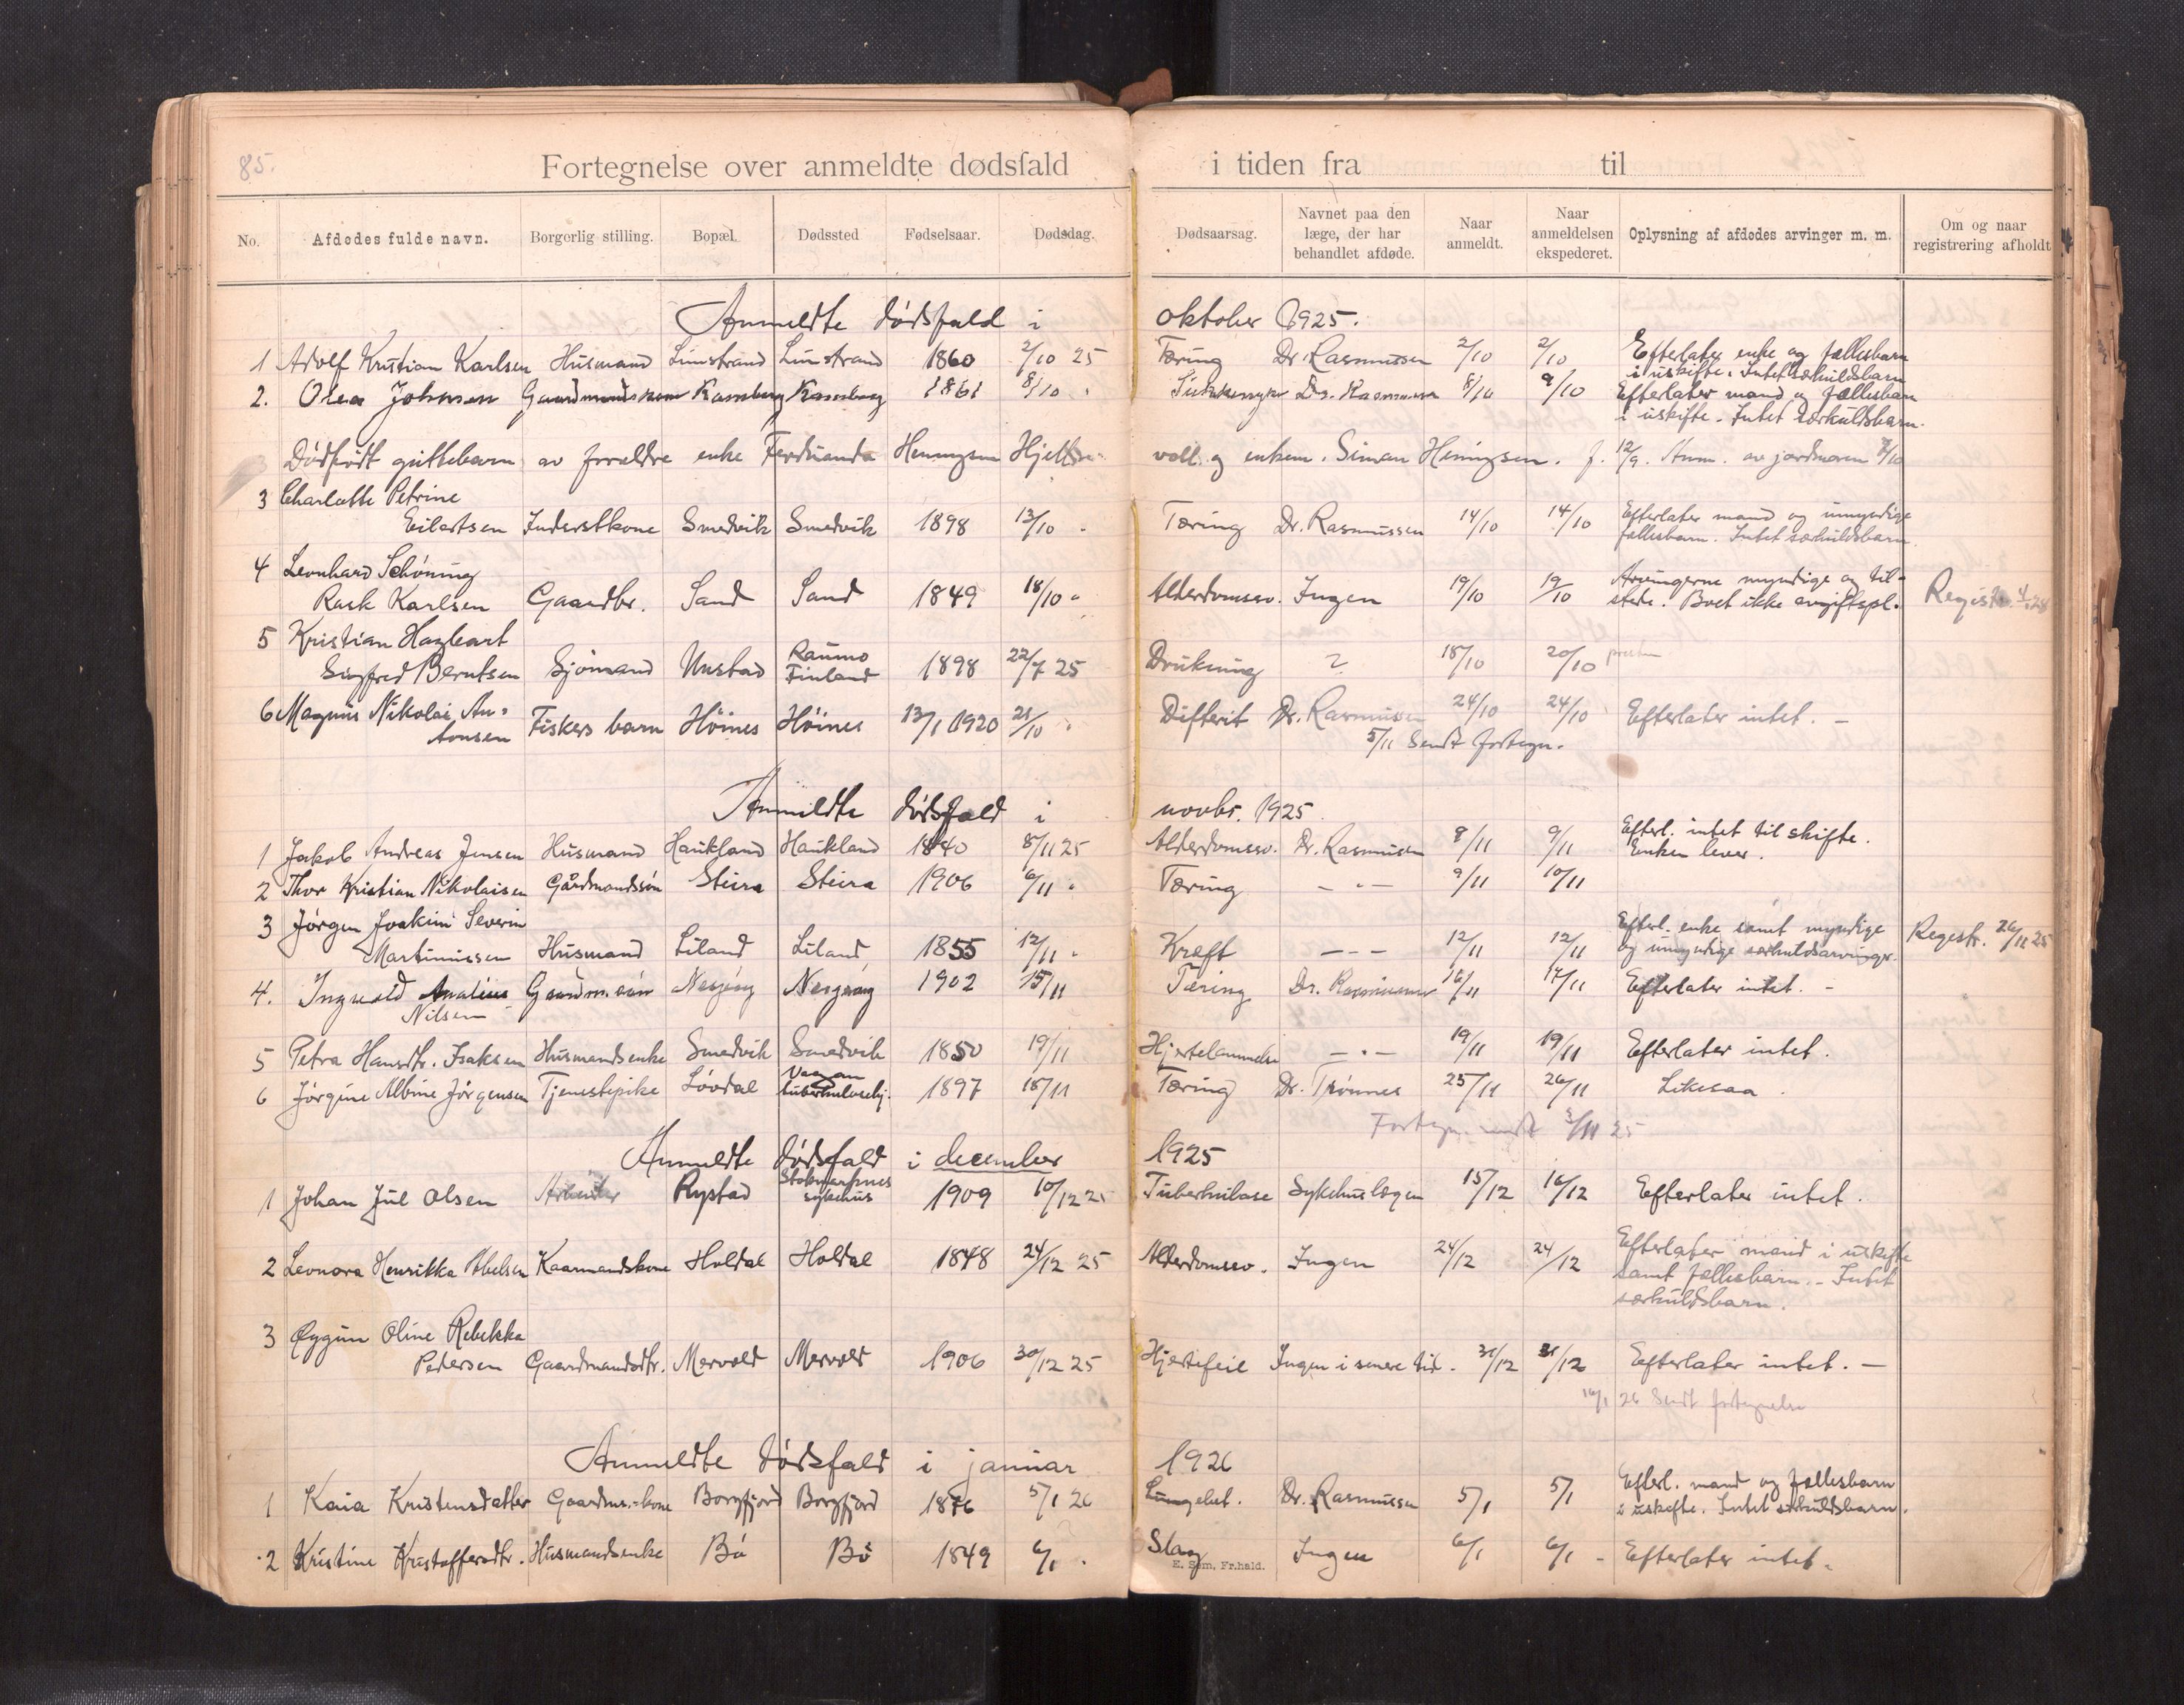 85.
Fortegnelse over anmeldte dødsfald i tiden fra til
No. Afdødes fulde navn. Borgerlig stilling. Bopæl. Dødssted Fødselsaar. Dødsdag. Dødsaarsag. Navnet paa den læge, der har behandlet afdøde. Naar anmeldt. Naar anmeldelsen ekspederet. Oplysning af afdødes arvinger m. m. Om og naar registrering afholdt
Anmeldte dødsfald i oktober 1925.
1 Adolf Kristian Karlsen Husmand Limstrand Limstrand 1860 2/10 25 Tæring Dr. Rasmussen 2/10 2/10 Efterlater enke og fællesbarn
i uskifte. Intet særkuldsbarn
2. Olea Johnsen Gaardmandskone Ramberg Ramberg 1861 8/10 Dr. Rasmussen 8/10 9/10 Efterlater mand og fællesbarn
i uskifte. Intet særkuldsbarn.
Dødfødt guttebarn av foreldre enke Ferdinanda Henningsen voll og enkem. Simon Henningsen. f. 12/9. Anm. av jordmoren 7/10
3 Charlotte Petrine
Eilertsen Inderstkone Smedvik Smedvik 1898 13/10 Tæring Dr. Rasmussen 14/10 14/10 Efterlater mand og umyndige
fællesbarn. Intet særkuldsbarn
4 Leonhard Schöning
Rask Karlsen Gaardbr. Sand Sand 1849 18/10 " Alderdomssv. Ingen 19/10 19/10 Arvingerne myndige og til-
stede. Boet ikke avgiftspl. Registr.
5 Kristian Hagbart
Sigfred Berntsen Sjömand Unstad Raumo
Finland 1898 22/7 25 Drukning ? 18/10 20/10 presten
6 Magnus Nikolai An-
tonsen Fiskers barn Höines Höines 13/1 1920 21/10 Difterit Dr. Rasmussen 24/10 24/10 Efterlater intet. –
5/11 Sendt fortegn.
Anmeldte dødsfald i novbr. 1925
1 Jakob Andreas Jensen Husmand Haukland Haukland 1840 8/11 25 Alderdomssv. Dr. Rasmussen 8/11 9/11 Efterl. intet til skifte.
Enken lever.
2 Thor Kristian Nikolaisen Gårdmandssön Steira Steira 1906 6/11 " Tæring – " – 9/11 10/11
3 Jörgen Joakim Severin
Martinussen Husmand Liland Liland 1855 12/11 Kræft – – – 12/11 12/11 Efterl. enke samt myndige
og umyndige særkuldsarvinger. Registr. 26/11 25
4. Ingvald Analius Gaardm.sön 1902 15/11 Tæring Dr. Rasmussen 16/11 17/11 Efterlater intet. –
Nilsen
5 Petra Hansdtr. Isaksen Husmandsenke Smedvik Smedvik 1850 19/11 Hjertelammelse – " – 19/11 19/11 Efterlater intet.
6 Jörgine Albine Jörgensen Tjenestepike Lövdal Vaagan
tuberkulosehj. 1897 18/11 Tæring Dr. Trönnes 25/11 26/11 Likesaa
Fortegn. sendt 25
Anmeldte dødsfald i december 1925
1 Johan Jul Olsen Arbeider Rystad Stokmarknes
sykehus 1909 10/12 25 Tuberkulose Sykehuslægen 15/12 16/12 Efterlater intet.
2 Leonora Henrikka Abelsen Kaarmandskone Holdal Holdal 1848 24/12 25 Alderdomssv. Ingen 24/12 24/12 Efterlater mand i uskifte
samt fællesbarn. – Intet
særkuldsbarn.
3 Øygun Oline Rebekka
Pedersen Gaardmandsdtr. Mervold Mervold 1906 30/12 25 Hjertefeil Ingen i senere tid. 31/12 31/12 Efterlater intet. –
16/1 26 Sendt fortegnelse
Anmeldte dødsfald i januar 1926
1 Kaia Kristensdatter Gaardm.-kone Borgfjord Borgfjord 1876 5/1 26 Lungebet. Dr. Rasmussen 5/1 5/1 Efterl. mand og fællesbarn
i uskifte. Intet særkuldsbarn.
2 Kristine Kristoffersdtr. Husmandsenke Bö Bö 1849 6/1 Slag Ingen 6/1 6/1 – Efterlater intet.
E. Sem, Fr.hald.